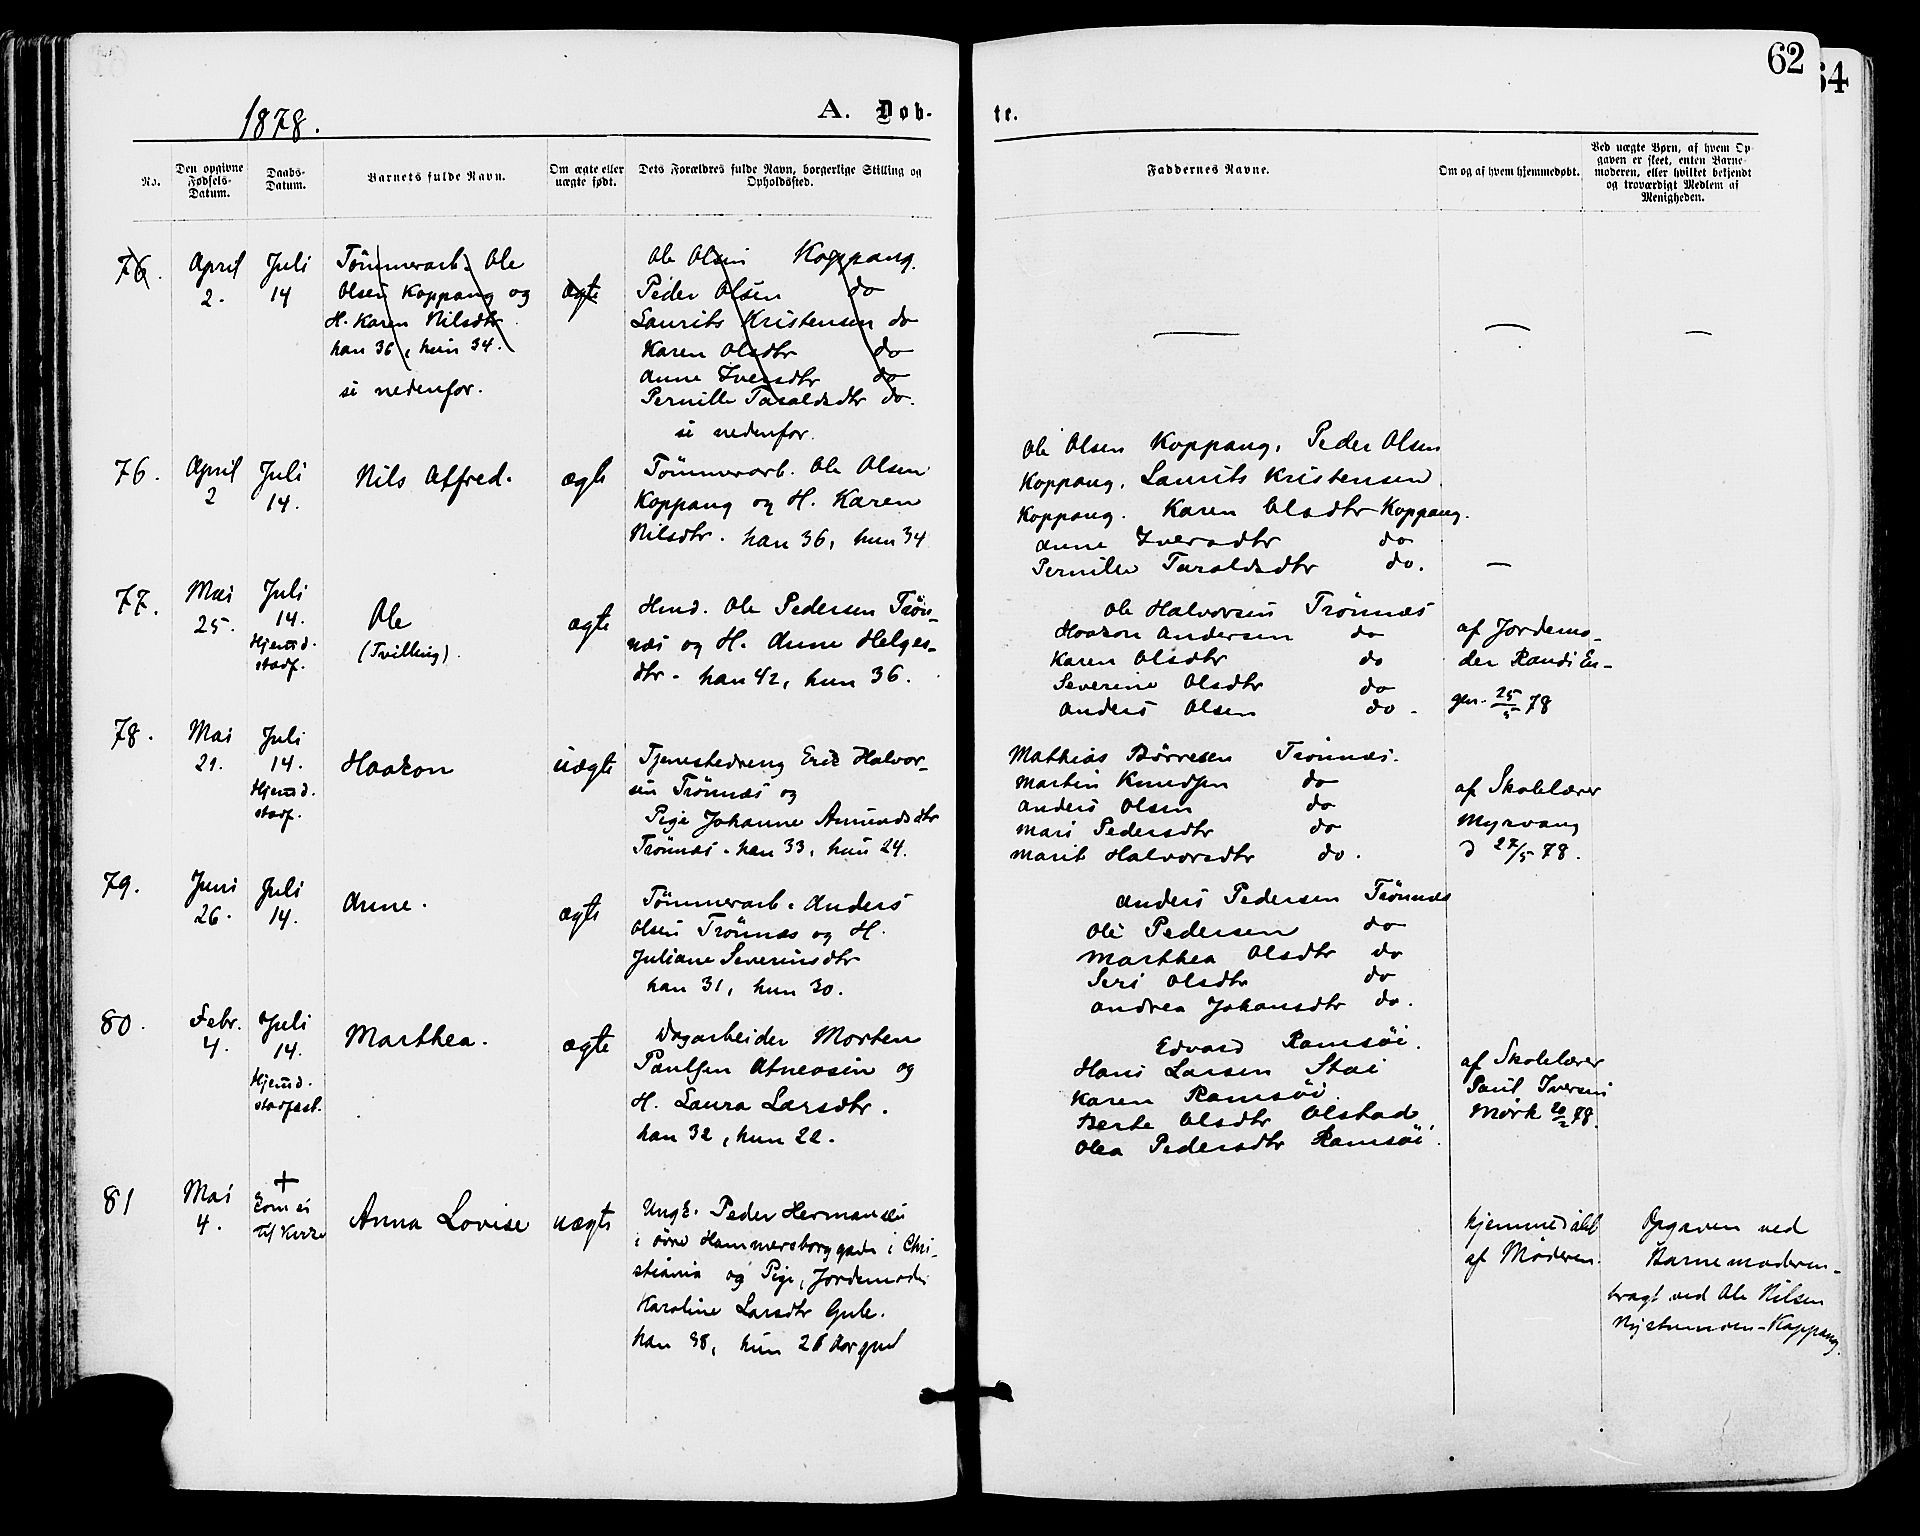 62
64
1878.
A. Døb-
te.
No.
Den opgivne Fødsels-Datum.
Daabs-Datum.
Barnets fulde Navn.
Om ægte eller uægte født.
Dets Forældres fulde Navn, borgerlige Stilling og Opholdssted.
Faddernes Navne.
Om og af hvem hjemmedøbt.
Ved uægte Børn, af hvem Op-
gaven er skeet, enten Barne-
moderen, eller hvilket bekjendt
og troværdigt Medlem af
Menigheden.
76.
April
2.
Juli
14
Tömmerarb. Ole
Olsen Koppang og
H. Karen Nilsdtr
han 36, hun 34.
se nedenfor.
ægte
Ole Olsen Koppang.
Peder Olsen do
Laurits Kristensen do
Karen Olsdtr do
Anne Iversdtr do
Pernille Taraldsdtr do.
se nedenfor.
76.
April
2
Juli
14.
Nils Alfred.
ægte
Tömmerarb. Ole Olsen
Koppang og H. Karen
Nilsdtr. han 36, hun 34
Ole Olsen Koppang. Peder Olsen
Koppang. Laurits Kristensen
Koppang. Karen Olsdtr Koppang.
Anne Iversdtr do
Pernille Taraldsdtr do. —
77.
Mai
25.
Juli
14.
Hjemd.
stadf.
Ole
(Tvilling).
ægte
Hmd. Ole Pedersen Trön-
næs og H. Anne Helges-
dtr. han 42, hun 36.
Ole Halvorsen Trönnæs
Haakon Andersen do
Karen Olsdtr do
Severine Olsdtr do
Anders Olsen do.
af Jordemo-
der Randi En-
gen. 25/5 78
78.
Mai
21.
Juli
14.
Hjemd.
stadf.
Haakon
uægte
Tjenestedreng Erik Halvor-
sen Trönnæs og
Pige Johanne Amundsdtr
Trönnæs. han 33, hun 24.
Mathias Börresen Trönnæs.
Martin Knudsen do
Anders Olsen do
Mari Pedersdtr do
Marit Halvorsdtr do.
af Skolelærer
Myrvang
d 27/5 78.
79.
Juni
26.
Juli
14.
Anne.
ægte
Tömmerarb. Anders
Olsen Trönnæs og H.
Juliane Severinsdtr
han 31, hun 30.
Anders Pedersen Trönnæs
Ole Pedersen do
Marthea Olsdtr do
Seri Olsdtr do
Andrea Johansdtr do.
80.
Febr.
4.
Juli
14.
Hjemd.
stadfæst.
Marthea.
ægte
Dagarbeider Morten
Paulsen Atneosen og
H. Laura Larsdtr.
han 32, hun 22.
Edvard Ramsöi.
Hans Larsen Stai
Karen Ramsöi.
Berte Olsdtr Olstad
Olea Pedersdtr Ramsöi.
af Skolelærer
Paul Iversen
Mörk 20/2 78.
81
Mai
4.
+
Kom ei
til Kirke
Anna Lovise
uægte
Ungk. Peder Hermansen
i övre Hammersborggade i Chri-
stiania og Pige, Jordemoder
Karoline Larsdtr
han 38, hun 28 Aar gml
hjemmedöbt
af Moderen.
Opgaven ved
Barnemoderen-
bragt ved Ole Nilsen
Nystumoen-Koppang.